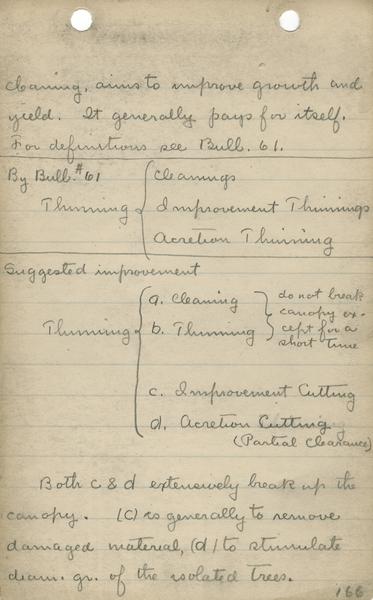 cleaning, aims to improve growth and
yield. It generally pays for itself.
For definitions see Bull. 61.
By Bull. #61
Thinning
Cleanings
Improvement Thinnings
Accretion Thinning
Suggested improvement
Thinning
a. Cleaning
b. Thinning
do not break
canopy ex-
cept for a
short time
c. Improvement Cutting
d. Accretion Cutting
(Partial Clearance)
Both c & d extensively break up the
canopy. (C) is generally to remove
damaged material, (d) to stimulate
diam. gr. of the isolated trees.
166